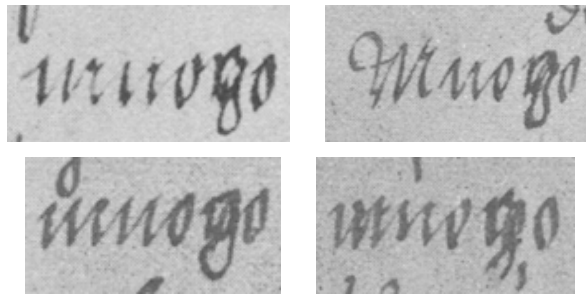 mnogo Mnogo
mnogo mnogo